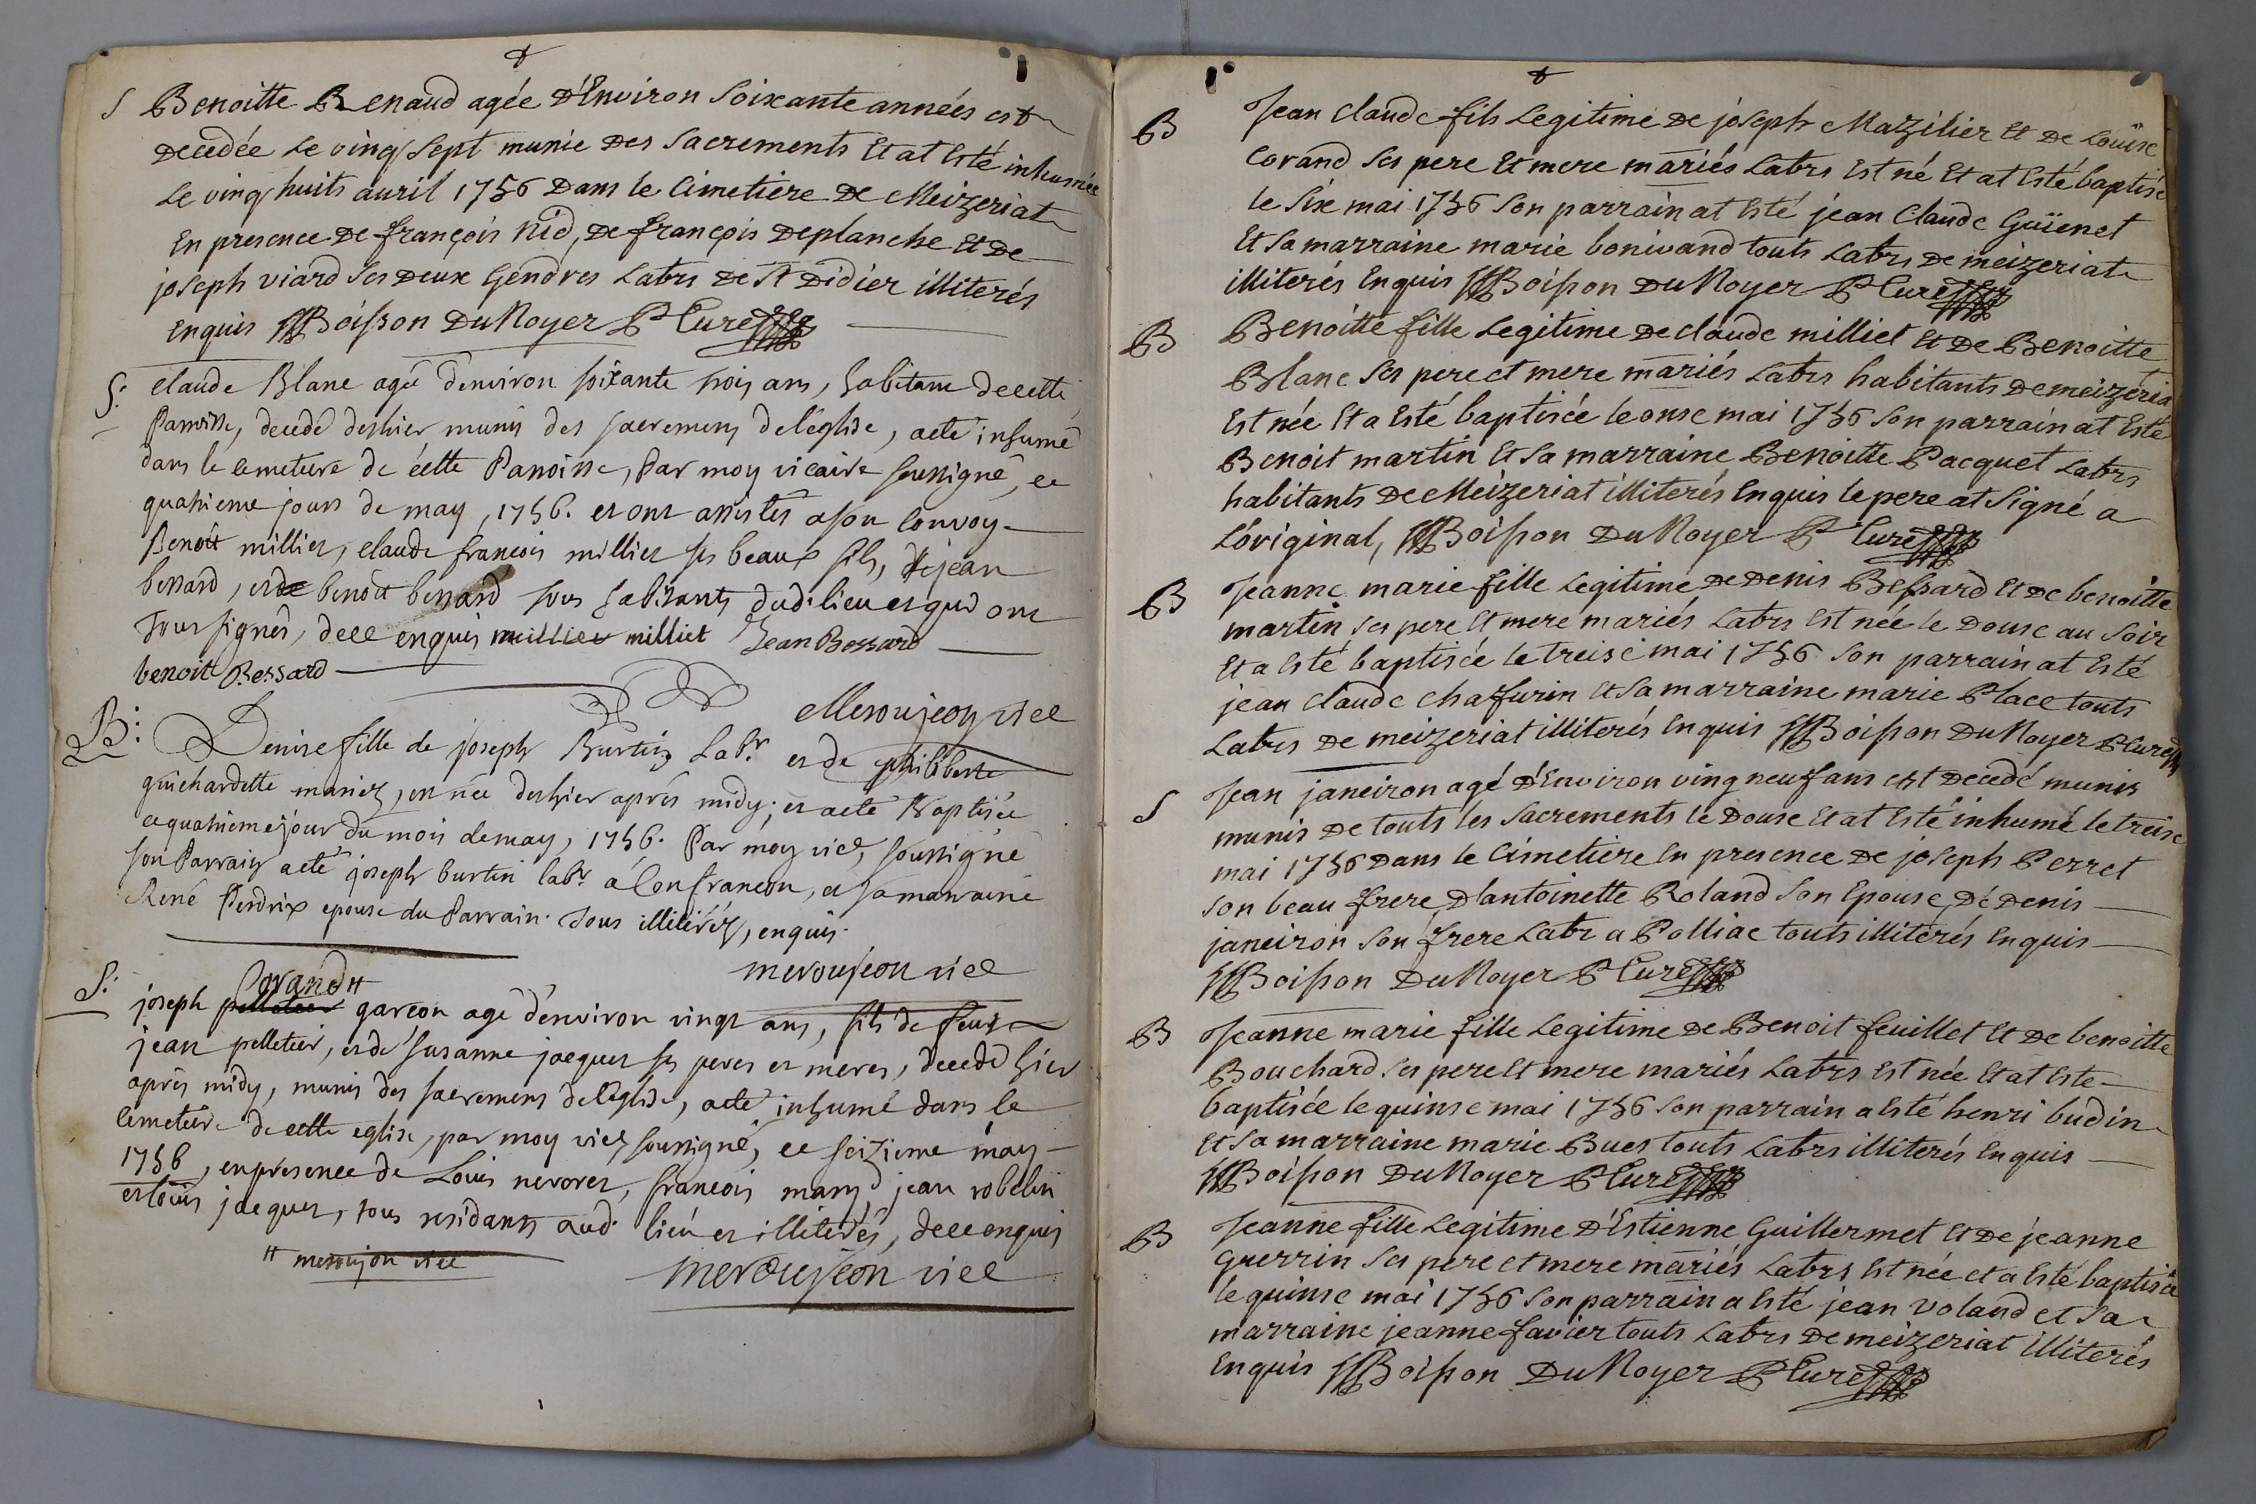 S Benoitte Renaud agée d'Environ Soixante années est
Decedée Le ving Sept munie Des Sacrements Et at Esté inhumée
Le ving huits auril 1756 Dans le Cimetiere De Meizeriat
En presence De françois Nid, De françois Deplanche Et De
joseph viard ses Deux Gendres Labrs De St Didier illiterés
Enquis Boisson Du Noyer P Curé
S: claude Blanc agée d'environ soixante trois ans, habitant decette
Parroisse, decedé deshier munis des sacremens del'eglise, aeté inhumé
dans le cemetiere de cette Parroisse, Par moy vicaire soussigné, ce
quatrieme jours de may, 1756. et ont assistés ason Convoy
Benoît milliet, claude françois milliet ses beaux fils, jean
bessard, et benoît bessard tous habitants dud. lieu et qui ont
Tous signés, dece enquis milliet milliet Jean Bessard
benoit Bessard
Meroujeon vice
B: Denise fille de joseph Burtin Labr. et de philiberte
guichardette mariez, est née deshier après midy; et aeté Baptisée
cequatriemejour du mois demay, 1756. Par moy vice, soussigné
son Parrain aeté joseph burtin labr. à Confrancon, et samarraine
René Perdrix epouse du Parrain. Tous illiterés, enquis.
meroujeon vice
Corand #
S: joseph pelletier garçon agé d'environ vingt ans, fils de feux
jean pelletier, et de susanne jacquet ses peres et meres, decedé hier
après midy, munis des sacremens del'eglise, aeté inhumé dans le
cemetiere de cette eglise, par moy vice soussigné, ce seizieme may
1756, enpresence de Louis nevoret, françois mary, jean robelin
et louis jacquet, tous residants aud. lieu et illiterés, dece enquis
# meroujon vice
meroujeon vice
B Jean claude fils Legitime De joseph Mazilier Et De Louise
Corand ses pere Et mere mariés Labrs Est né Et at Esté baptisé
le Six mai 1756 Son parrain at Esté jean Claude Guienet
Et Sa marraine marie bonivand touts Labrs De meizeriat
illiterés Enquis Boisson Du Noyer P Curé
B Benoitte fille Legitime De claude milliet Et De Benoitte
Blanc ses pere et mere mariés Labrs habitants De meizeria
Est née Et a Esté baptisée le onse mai 1756 Son parrain at Esté
Benoit martin Et Sa marraine Benoitte Pacquet Labrs
habitants De Meizeriat illiterés Enquis le pere at Signé a
L'original, Boisson Du Noyer P Curé
B Jeanne marie fille Legitime De Denis Bessard Et De benoitte
martin ses pere Et mere mariés Labrs Est née le Douse au Soir
Et a Esté baptisée le treise mai 1756 Son parrain at Esté
jean Claude chafurin Et Sa marraine marie Place touts
Labrs De meizeriat illiterés Enquis Boisson Du Noyer P Curé
S Jean janeiron agé d'Environ ving neuf ans est Decedé munis
munis De touts les Sacrements le Douse Et at Esté inhumé le treise
mai 1756 Dans le Cimetiere En presence De joseph Perret
Son beau frere, D'antoinette Roland Son Epouse, De Denis
janeiron Son frere Labr a Polliac touts illiterés Enquis
Boisson Du Noyer P Curé
B Jeanne marie fille Legitime De Benoit feuillet Et De benoitte
Bouchard ses pere Et mere mariés Labrs Est née Et at Esté
baptisée le quinse mai 1756 Son parrain a Esté henri budin
Et Sa marraine marie Buet touts Labrs illiterés Enquis
Boisson Du Noyer P Curé
B Jeanne fille Legitime D'Estienne Guillermet Et De jeanne
Guerrin ses pere et mere mariés Labrs Est née et a Esté baptisée
le quinse mai 1756 Son parrain a Esté jean voland et Sa
marraine jeanne favier touts Labrs De meizeriat illiterés
Enquis Boisson Du Noyer P Curé